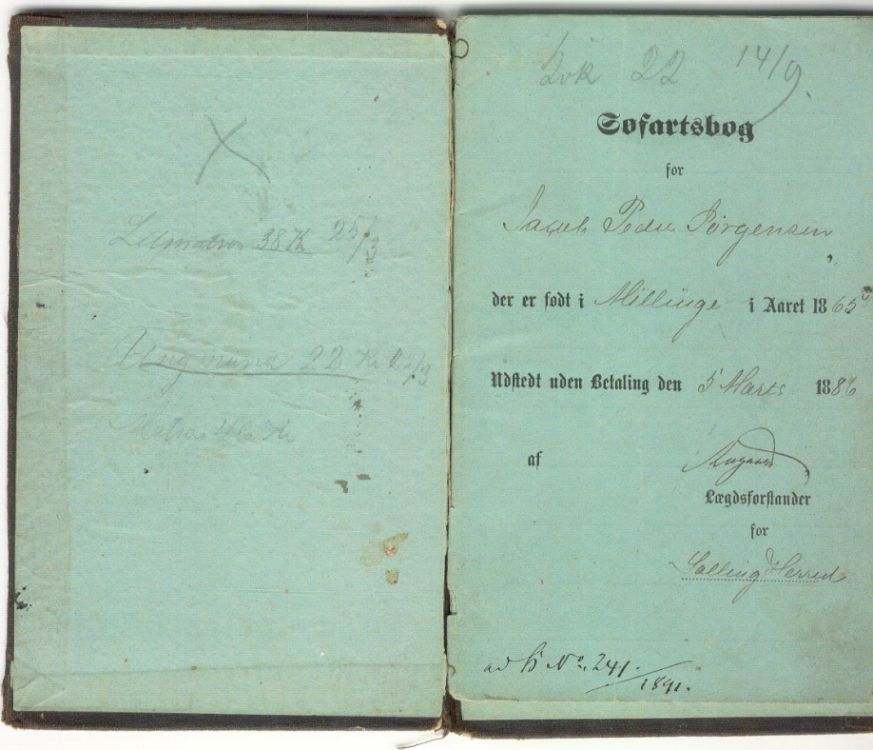 Letmatros 38 Kr 25/3
Ungmand 22 Kr
Matros Kr
22 14/9.
Søfartsbog
for
Jacob Peder Jørgensen,
der er født i Millinge i Aaret 1865
Udstedt uden Betaling den 5 Marts 1886
af
Lægdsforstander
for
Salling Herred
ad No. 241.
1891.